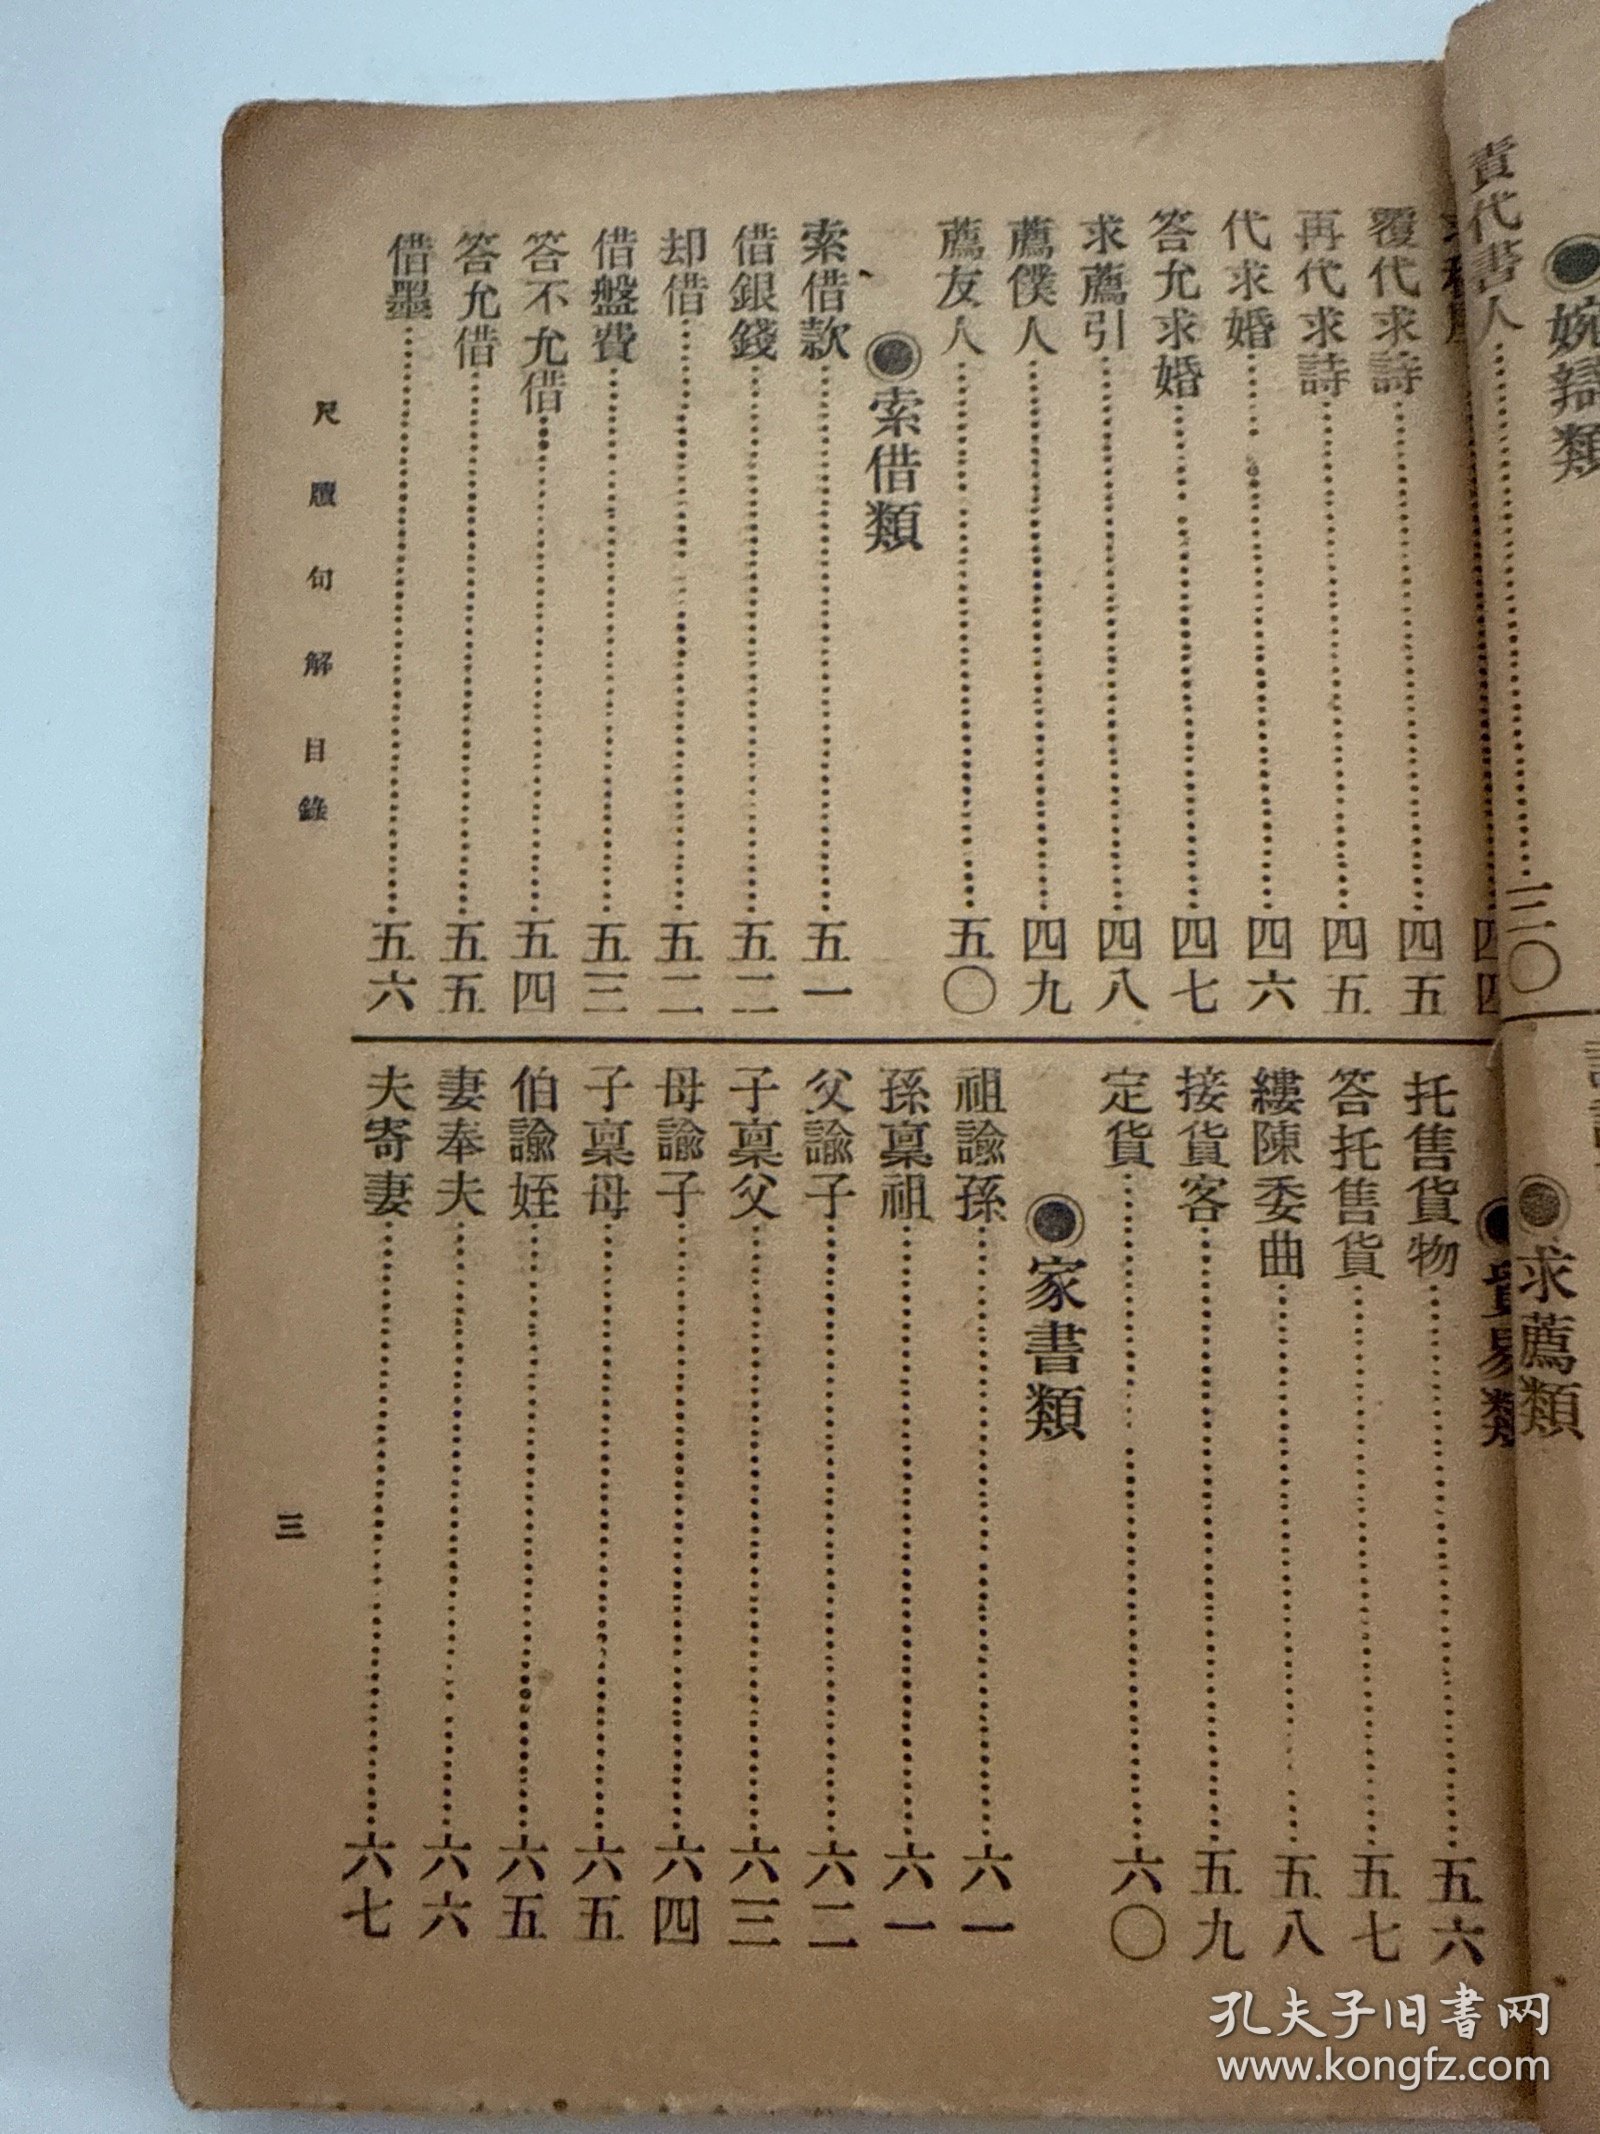 ●婉辯類
責代書人……三〇
●求薦類
四四
覆代求詩……四五
再代求詩……四五
代求婚……四六
答允求婚……四七
求薦引……四八
薦僕人……四九
薦友人……五〇
●索借類
索借款……五一
借銀錢……五二
却借……五二
借盤費……五三
答不允借……五四
答允借……五五
借墨……五六
●貿易類
托售貨物……五六
答托售貨……五七
縷陳委曲……五八
接貨客……五九
定貨……六〇
●家書類
祖諭孫……六一
孫稟祖……六一
父諭子……六二
子稟父……六三
母諭子……六四
子稟母……六五
伯諭姪……六五
妻奉夫……六六
夫寄妻……六七
尺牘句解目錄
三
孔夫子旧书网
www.kongfz.com